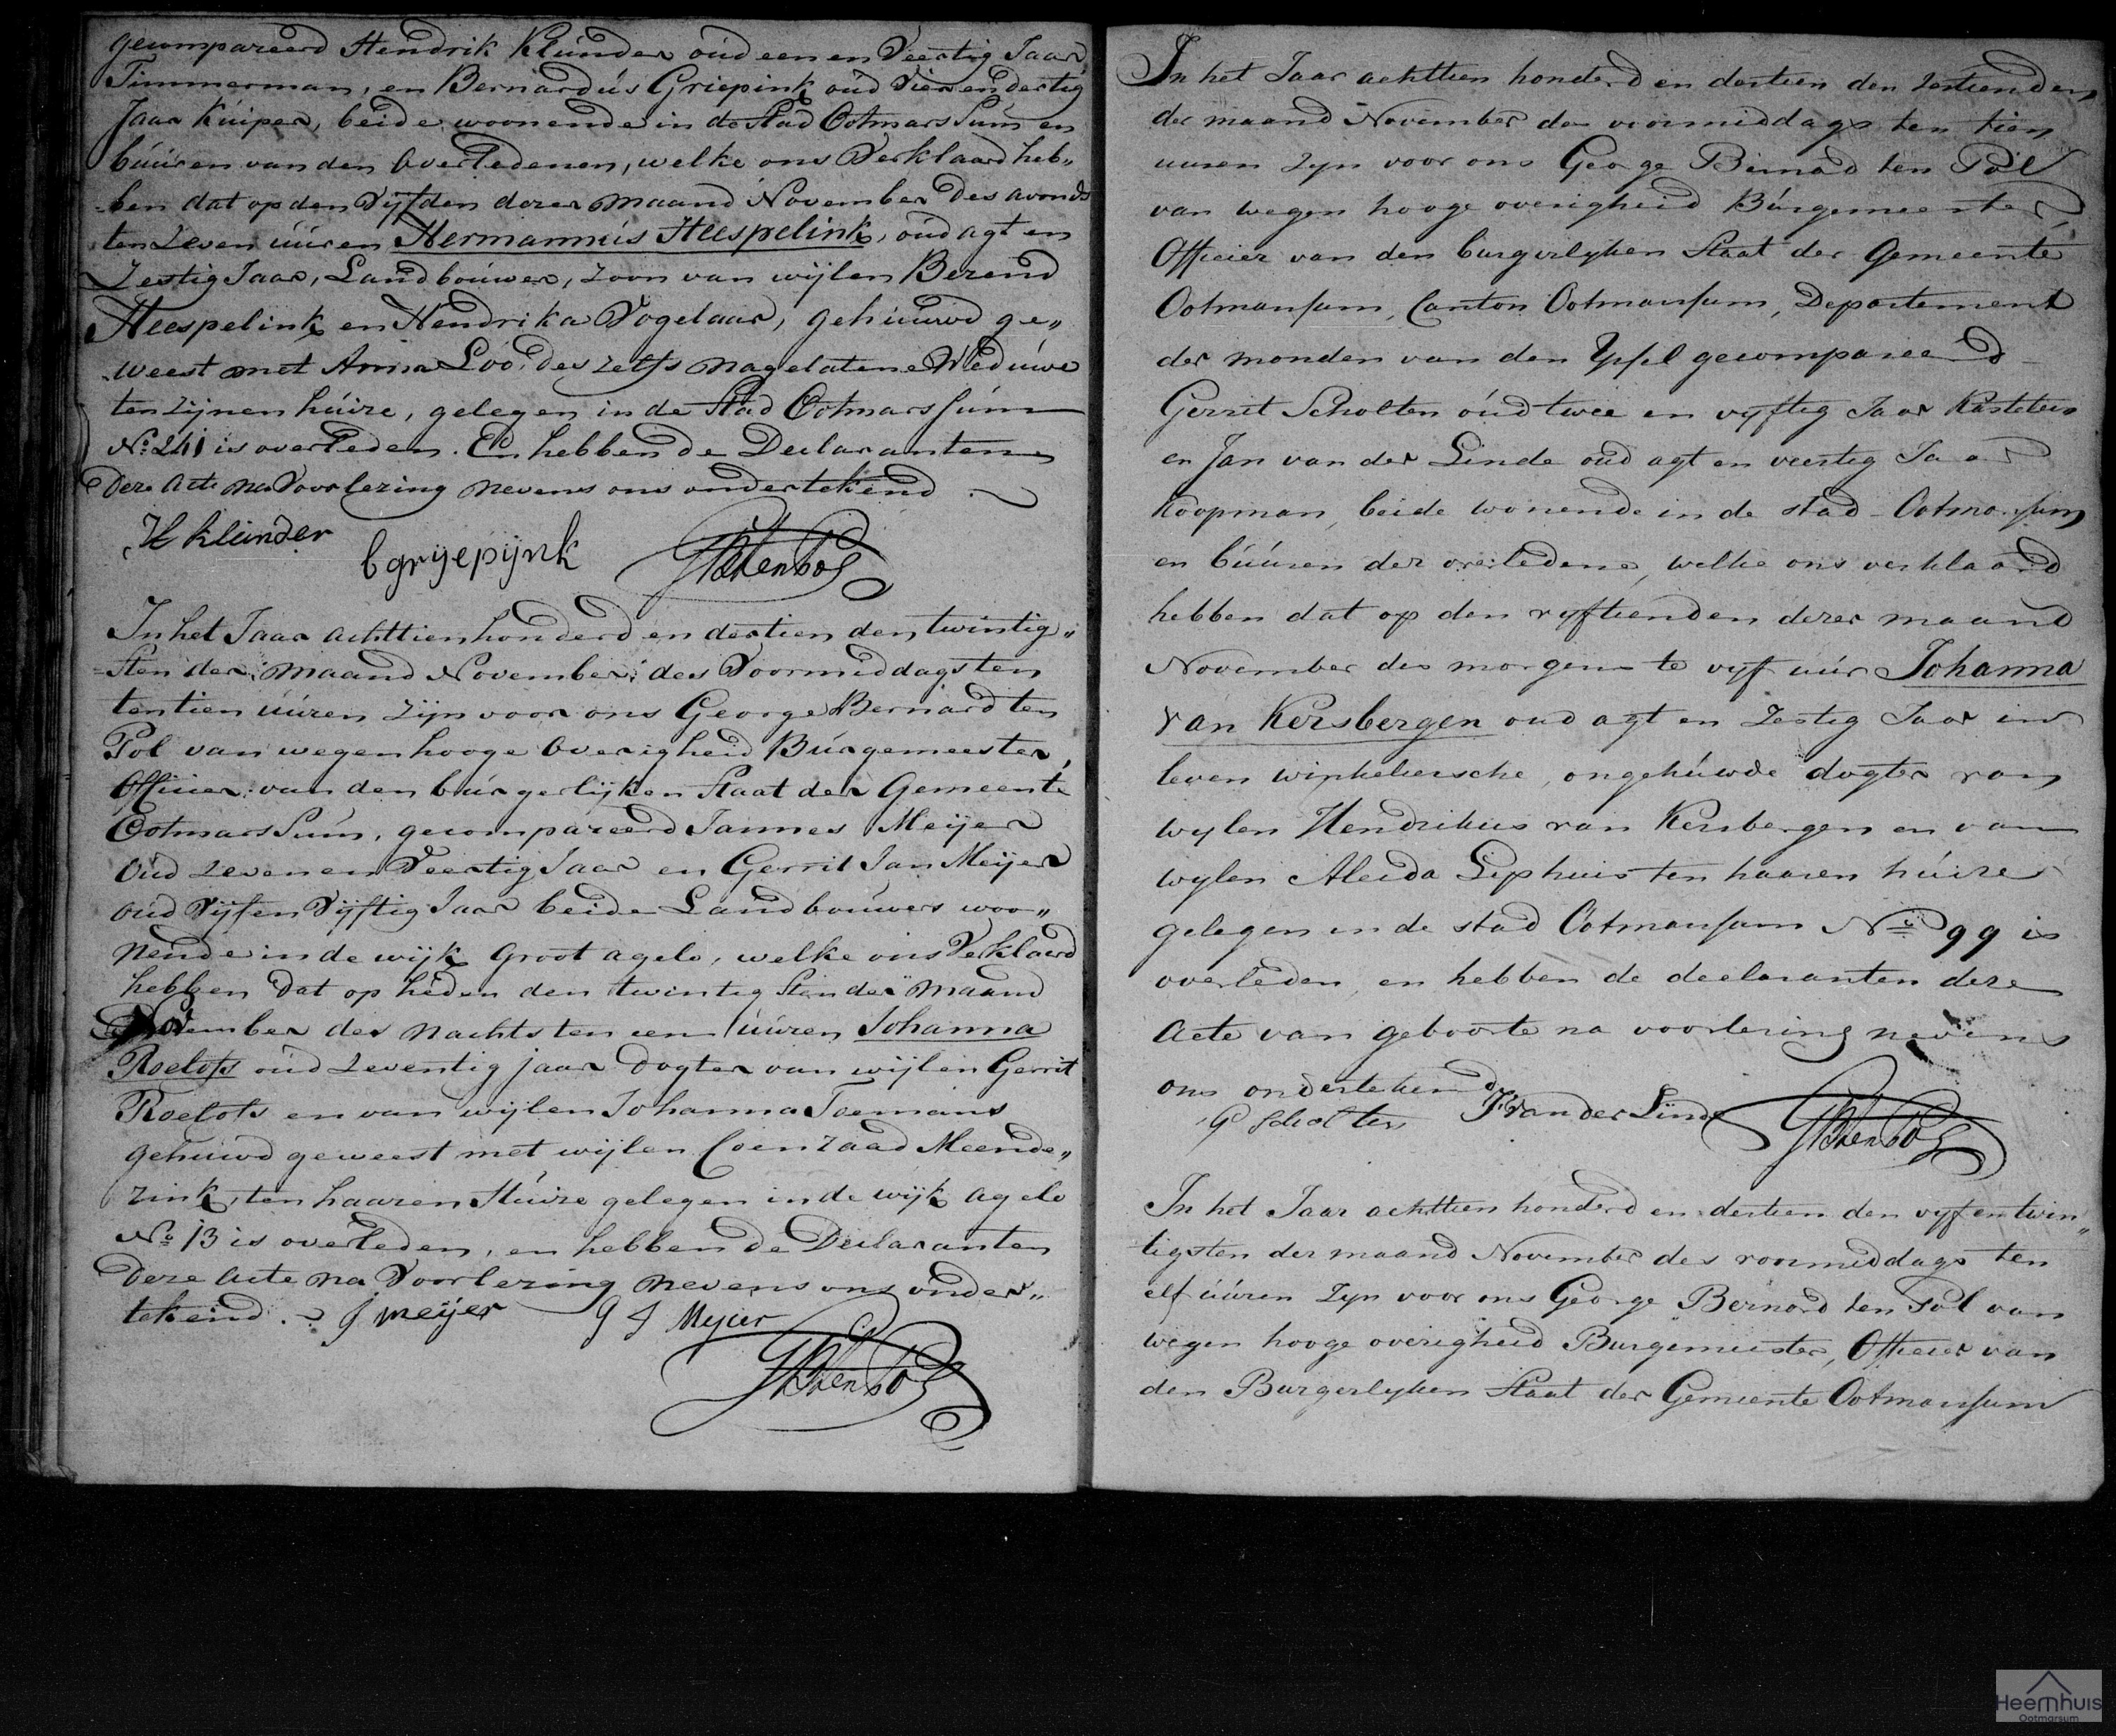 gecompareerd Hendrik Klunder oud een en Veertig Jaar
Timmerman, en Bernardus Griepink oud Vier en dertig
Jaar Kuiper, beide woonende in de Stad Ootmarssum en
buuren van den Overledenen, welke ons Verklaard heb„
ben dat op den Vijfden dezer maand November des avonds
ten Zeven uuren Hermannus Heespelink, oud agt en
Zestig Jaar, Landbouwer, zoon van wijlen Berend
Heespelink en Hendrika Vogelaar, gehuuwd ge„
weest met Anna Loo, des zelfs nagelatene Weduwe
ten zijnen huize, gelegen in de Stad Ootmarssum
No: 241 is overleden. En hebben de Declaranten
deze acte na Voorlezing nevens ons ondertekend.
H Klunder
b grijepijnk
GB ten Pol
In het Jaar achttien honderd en dertien den twintig„
sten der maand November des Voormiddags ten
ten tien uuren zijn voor ons George Bernard ten
Pol van wegen hooge Overigheid Burgemeester,
Officier van den burgerlijken Staat der Gemeente
Ootmarssum, gecompareerd Jannes Meijer
oud zeven en Veertig Jaar en Gerrit Jan Meijer
oud Vijf en Vijftig Jaar beide Landbouwers woo„
nende in de wijk Groot agelo, welke ons Verklaard
hebben dat op heden den twintig Sten der maand
November des Nachts ten een uuren Johanna
Roelofs oud zeventig jaar dogter van wijlen Gerrit
Roelofs en van wijlen Johanna Toemans
gehuwd geweest met wijlen Coenraad Meende„
rink, ten haaren Huize gelegen in de wijk agelo
No 13 is overleden, en hebben de Declaranten
deze acte na Voorlezing nevens ons onder„
tekend. J meijer G J Meyier
GB ten Pol
In het Jaar achttien honderd en dertien den zestienden
der maand November des voormiddags ten tien
uuren zyn voor ons George Bernard ten Pol
van wegen hooge overigheid Burgemeester,
Officier van den burgerlyken Staat der Gemeente
Ootmarssum, Canton Ootmarssum, Departement
der monden van den Yssel gecompareerd
Gerrit Scholten oud twee en vyftig Jaar Kastelein
en Jan van der Linde oud agt en veertig Jaar
Koopman, beide wonende in de stad Ootmarssum
en buuren der overledene, welke ons verklaard
hebben dat op den vyftienden dezer maand
November des morgens te vyf uur Johanna
van Kersbergen oud agt en Zestig Jaar in
leven winkeliersche, ongehuwde dogter van
wylen Hendrikus van Kersbergen en van
wylen Aleida Liphuis ten haaren huize
gelegen in de stad Ootmarssum No 99 is
overleden, en hebben de declaranten deze
acte van geboorte na voorlezing nevens
ons ondertekend
G Scholten J van der Linde GB ten Pol
In het Jaar achttien honderd en dertien den vyf en twin„
tigsten der maand November des voormiddags ten
elf uuren zyn voor ons George Bernard ten Pol van
wegen hooge overigheid Burgemeester, Officier van
den Burgerlyken Staat der Gemeente Ootmarssum
Heemhuis
Ootmarsum